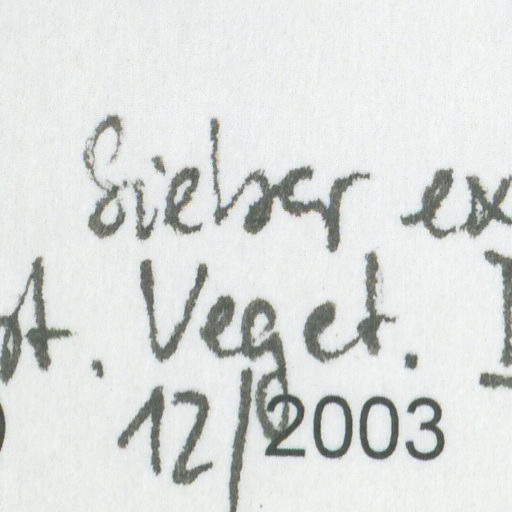 Sieber ex
ot. Veget. I
12/2003